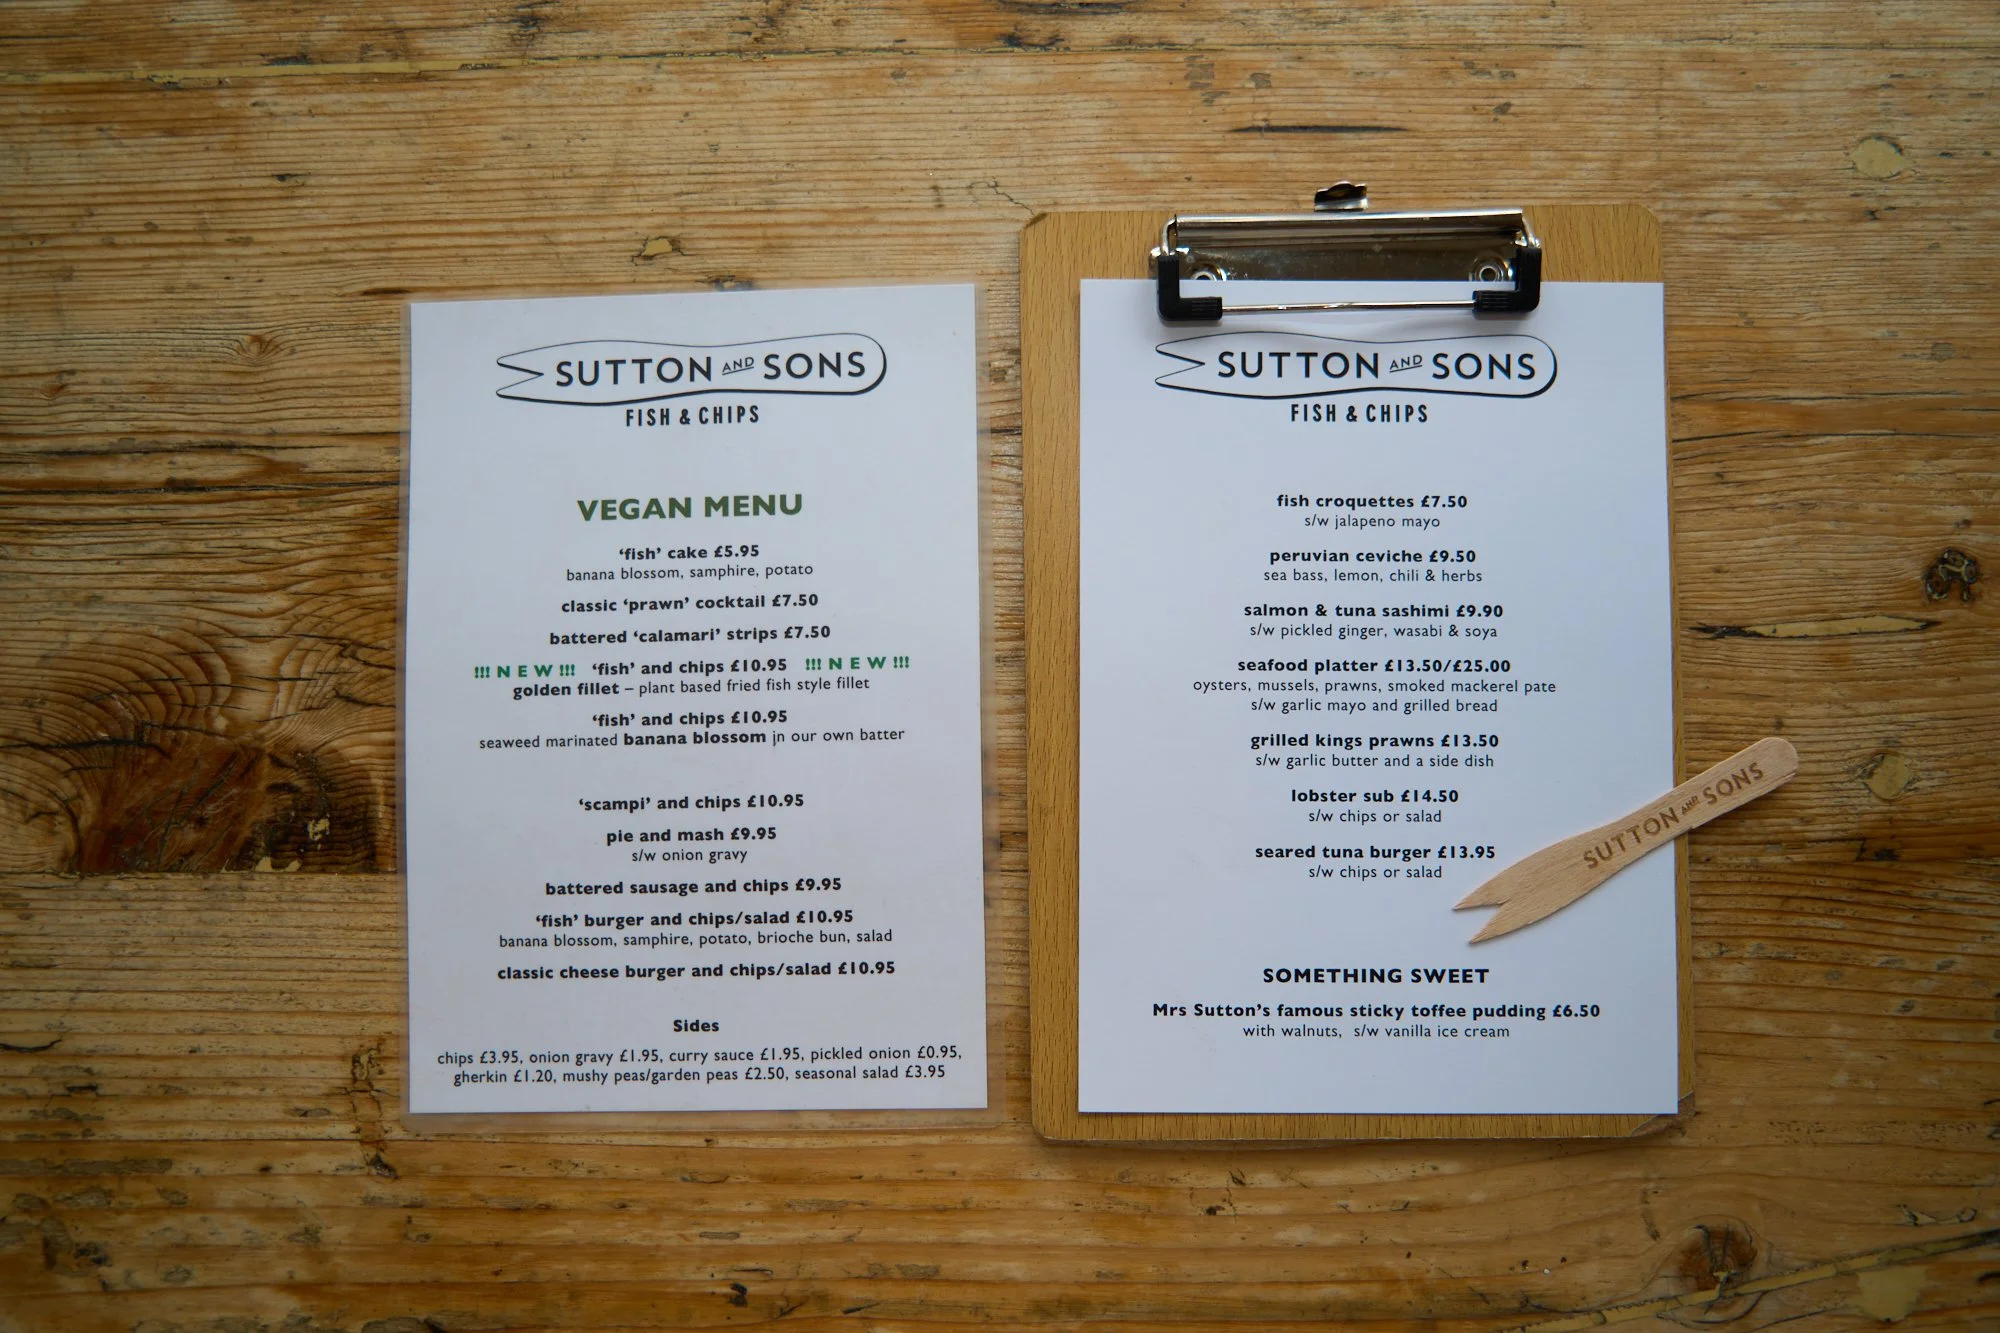 SUTTON AND SONS
FISH & CHIPS
VEGAN MENU
‘fish’ cake £5.95
banana blossom, samphire, potato
classic ‘prawn’ cocktail £7.50
battered ‘calamari’ strips £7.50
!!! N E W !!! ‘fish’ and chips £10.95 !!! N E W !!!
golden fillet – plant based fried fish style fillet
‘fish’ and chips £10.95
seaweed marinated banana blossom jn our own batter
‘scampi’ and chips £10.95
pie and mash £9.95
s/w onion gravy
battered sausage and chips £9.95
‘fish’ burger and chips/salad £10.95
banana blossom, samphire, potato, brioche bun, salad
classic cheese burger and chips/salad £10.95
Sides
chips £3.95, onion gravy £1.95, curry sauce £1.95, pickled onion £0.95,
gherkin £1.20, mushy peas/garden peas £2.50, seasonal salad £3.95
SUTTON AND SONS
FISH & CHIPS
fish croquettes £7.50
s/w jalapeno mayo
peruvian ceviche £9.50
sea bass, lemon, chili & herbs
salmon & tuna sashimi £9.90
s/w pickled ginger, wasabi & soya
seafood platter £13.50/£25.00
oysters, mussels, prawns, smoked mackerel pate
s/w garlic mayo and grilled bread
grilled kings prawns £13.50
s/w garlic butter and a side dish
lobster sub £14.50
s/w chips or salad
seared tuna burger £13.95
s/w chips or salad
SOMETHING SWEET
Mrs Sutton’s famous sticky toffee pudding £6.50
with walnuts, s/w vanilla ice cream
SUTTON AND SONS